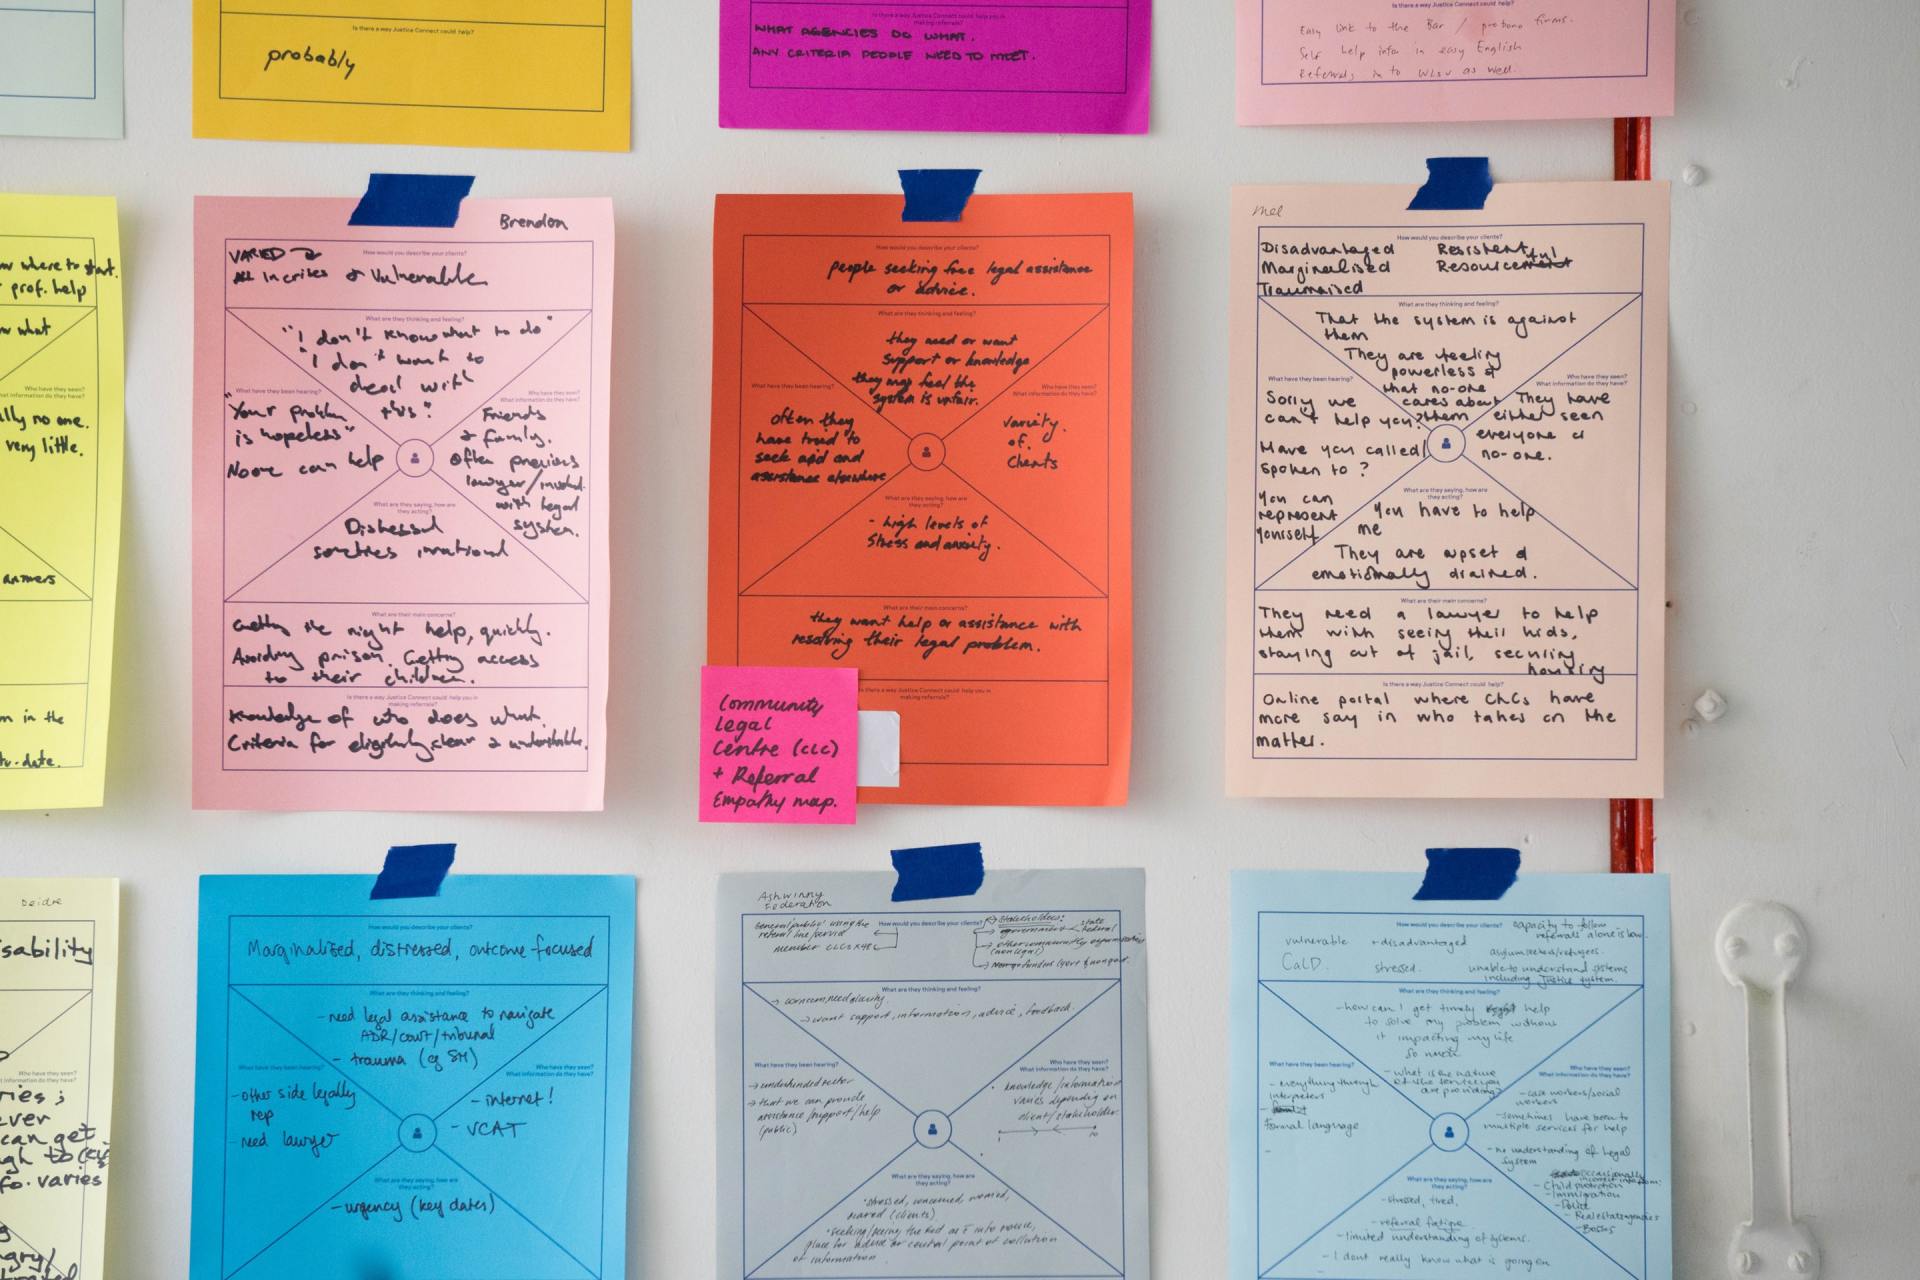 Is there a way Justice Connect could help?
probably
Is there a way Justice Connect could help you in
making referrals?
WHAT AGENCIES DO WHAT.
ANY CRITERIA PEOPLE NEED TO MEET.
Easy link to the Bar / probono firms.
Self help info in easy English
Referrals in to WLSV as well.
w where to start.
prof. help
w what
lly no one.
very little.
answers
m in the
to-date.
Brendon
How would you describe your clients?
VARIED
All in crises & Vulnerable
What are they thinking and feeling?
"I don't know what to do"
"I don't want to
deal with
this"
What have they been hearing?
"Your problem
is hopeless"
No one can help
Who have they seen?
What information do they have?
Friends
& family.
Often previous
lawyer/involved
with legal
system.
What are they saying, how are
they acting?
Distressed
sometimes irrational
What are their main concerns?
Getting the right help, quickly.
Avoiding prison. Getting access
to their children.
Is there a way Justice Connect could help you in
making referrals?
Knowledge of who does what.
Criteria for eligibility, clear & understandable.
How would you describe your clients?
people seeking free legal assistance
or advice.
What are they thinking and feeling?
they need or want
support or knowledge
they may feel the
system is unfair.
What have they been hearing?
often they
have tried to
seek aid and
assistance elsewhere
Who have they seen?
What information do they have?
variety
of
clients
What are they saying, how are
they acting?
- high levels of
stress and anxiety.
What are their main concerns?
they want help or assistance with
resolving their legal problem.
Is there a way Justice Connect could help you in
making referrals?
Community
Legal
Centre (CLC)
+ Referral
Empathy map.
Mel
How would you describe your clients?
Disadvantaged
Marginalised
Traumatised
Resistent
Resourceful
What are they thinking and feeling?
That the system is against
them
They are feeling
powerless &
that no-one
cares about
them
What have they been hearing?
Sorry we
can't help you?
Have you called/
spoken to?
You can
represent
yourself
Who have they seen?
What information do they have?
They have
either seen
everyone or
no-one.
What are they saying, how are
they acting?
You have to help
me
They are upset &
emotionally drained.
What are their main concerns?
They need a lawyer to help
them with seeing their kids,
staying out of jail, securing
housing
Is there a way Justice Connect could help?
Online portal where CLCs have
more say in who takes on the
matter.
Deidre
sability
ries;
ever
can get
gh to
fo. varies
ngry/
How would you describe your clients?
Marginalised, distressed, outcome-focused
What are they thinking and feeling?
- need legal assistance to navigate
ADR/court/tribunal
- trauma (eg SH)
What have they been hearing?
- other side legally
rep
- need lawyer
Who have they seen?
What information do they have?
- internet!
- VCAT
What are they saying, how are
they acting?
- urgency (key dates)
Ashwinny
Federation
How would you describe your clients?
'General public' using the
referral line/service
member CLCs x48
Stakeholders:
government
state
federal
other community organisations
(non legal)
What are they thinking and feeling?
→ concern, need clarity
→ want support, information, advice, feedback.
What have they been hearing?
→ underfunded sector
→ that we can provide
assistance/support/help
(public)
Who have they seen?
What information do they have?
knowledge/information
varies depending on
client/stakeholder
10
What are they saying, how are
they acting?
stressed, concerned, worried,
(clients)
place for advice or central point of
of information
How would you describe your clients?
vulnerable + disadvantaged
CaLD. stressed.
capacity to follow
referrals alone is low.
asylum seekers/refugees.
unable to understand systems
including justice system.
What are they thinking and feeling?
- how can I get timely help
to solve my problem without
it impacting my life
so much
- what is the nature
of the service you
are providing?
What have they been hearing?
- everything through
interpreters
Formal language
Who have they seen?
What information do they have?
- case workers/social
workers
- sometimes have been to
multiple services for help
- no understanding of legal
system
occasionally
- Child protection
- Immigration
- Police
- Real estate agencies
- Bosses
What are they saying, how are
they acting?
- stressed, tired,
- referral fatigue.
- limited understanding of systems.
- I dont really know what is going on